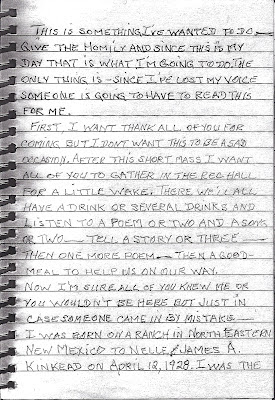 THIS IS SOMETHING I'VE WANTED TO DO -
GIVE THE HOMILY AND SINCE THIS IS MY
DAY THAT IS WHAT I'M GOING TO DO. THE
ONLY THING IS - SINCE I'VE LOST MY VOICE
SOMEONE IS GOING TO HAVE TO READ THIS
FOR ME.
FIRST, I WANT THANK ALL OF YOU FOR
COMING BUT I DON'T WANT THIS TO BE A SAD
OCCASION. AFTER THIS SHORT MASS I WANT
ALL OF YOU TO GATHER IN THE REC HALL
FOR A LITTLE WAKE. THERE WE'LL ALL
HAVE A DRINK OR SEVERAL DRINKS AND
LISTEN TO A POEM OR TWO AND A SONG
OR TWO - TELL A STORY OR THREE
THEN ONE MORE POEM - THEN A GOOD -
MEAL TO HELP US ON OUR WAY.
NOW I'M SURE ALL OF YOU KNEW ME OR
YOU WOULDN'T BE HERE BUT JUST IN
CASE SOMEONE CAME IN BY MISTAKE -
I WAS BARN ON A RANCH IN NORTH EASTERN
NEW MEXICO TO NELLE & JAMES A.
KINKEAD ON APRIL 12, 1928. I WAS THE